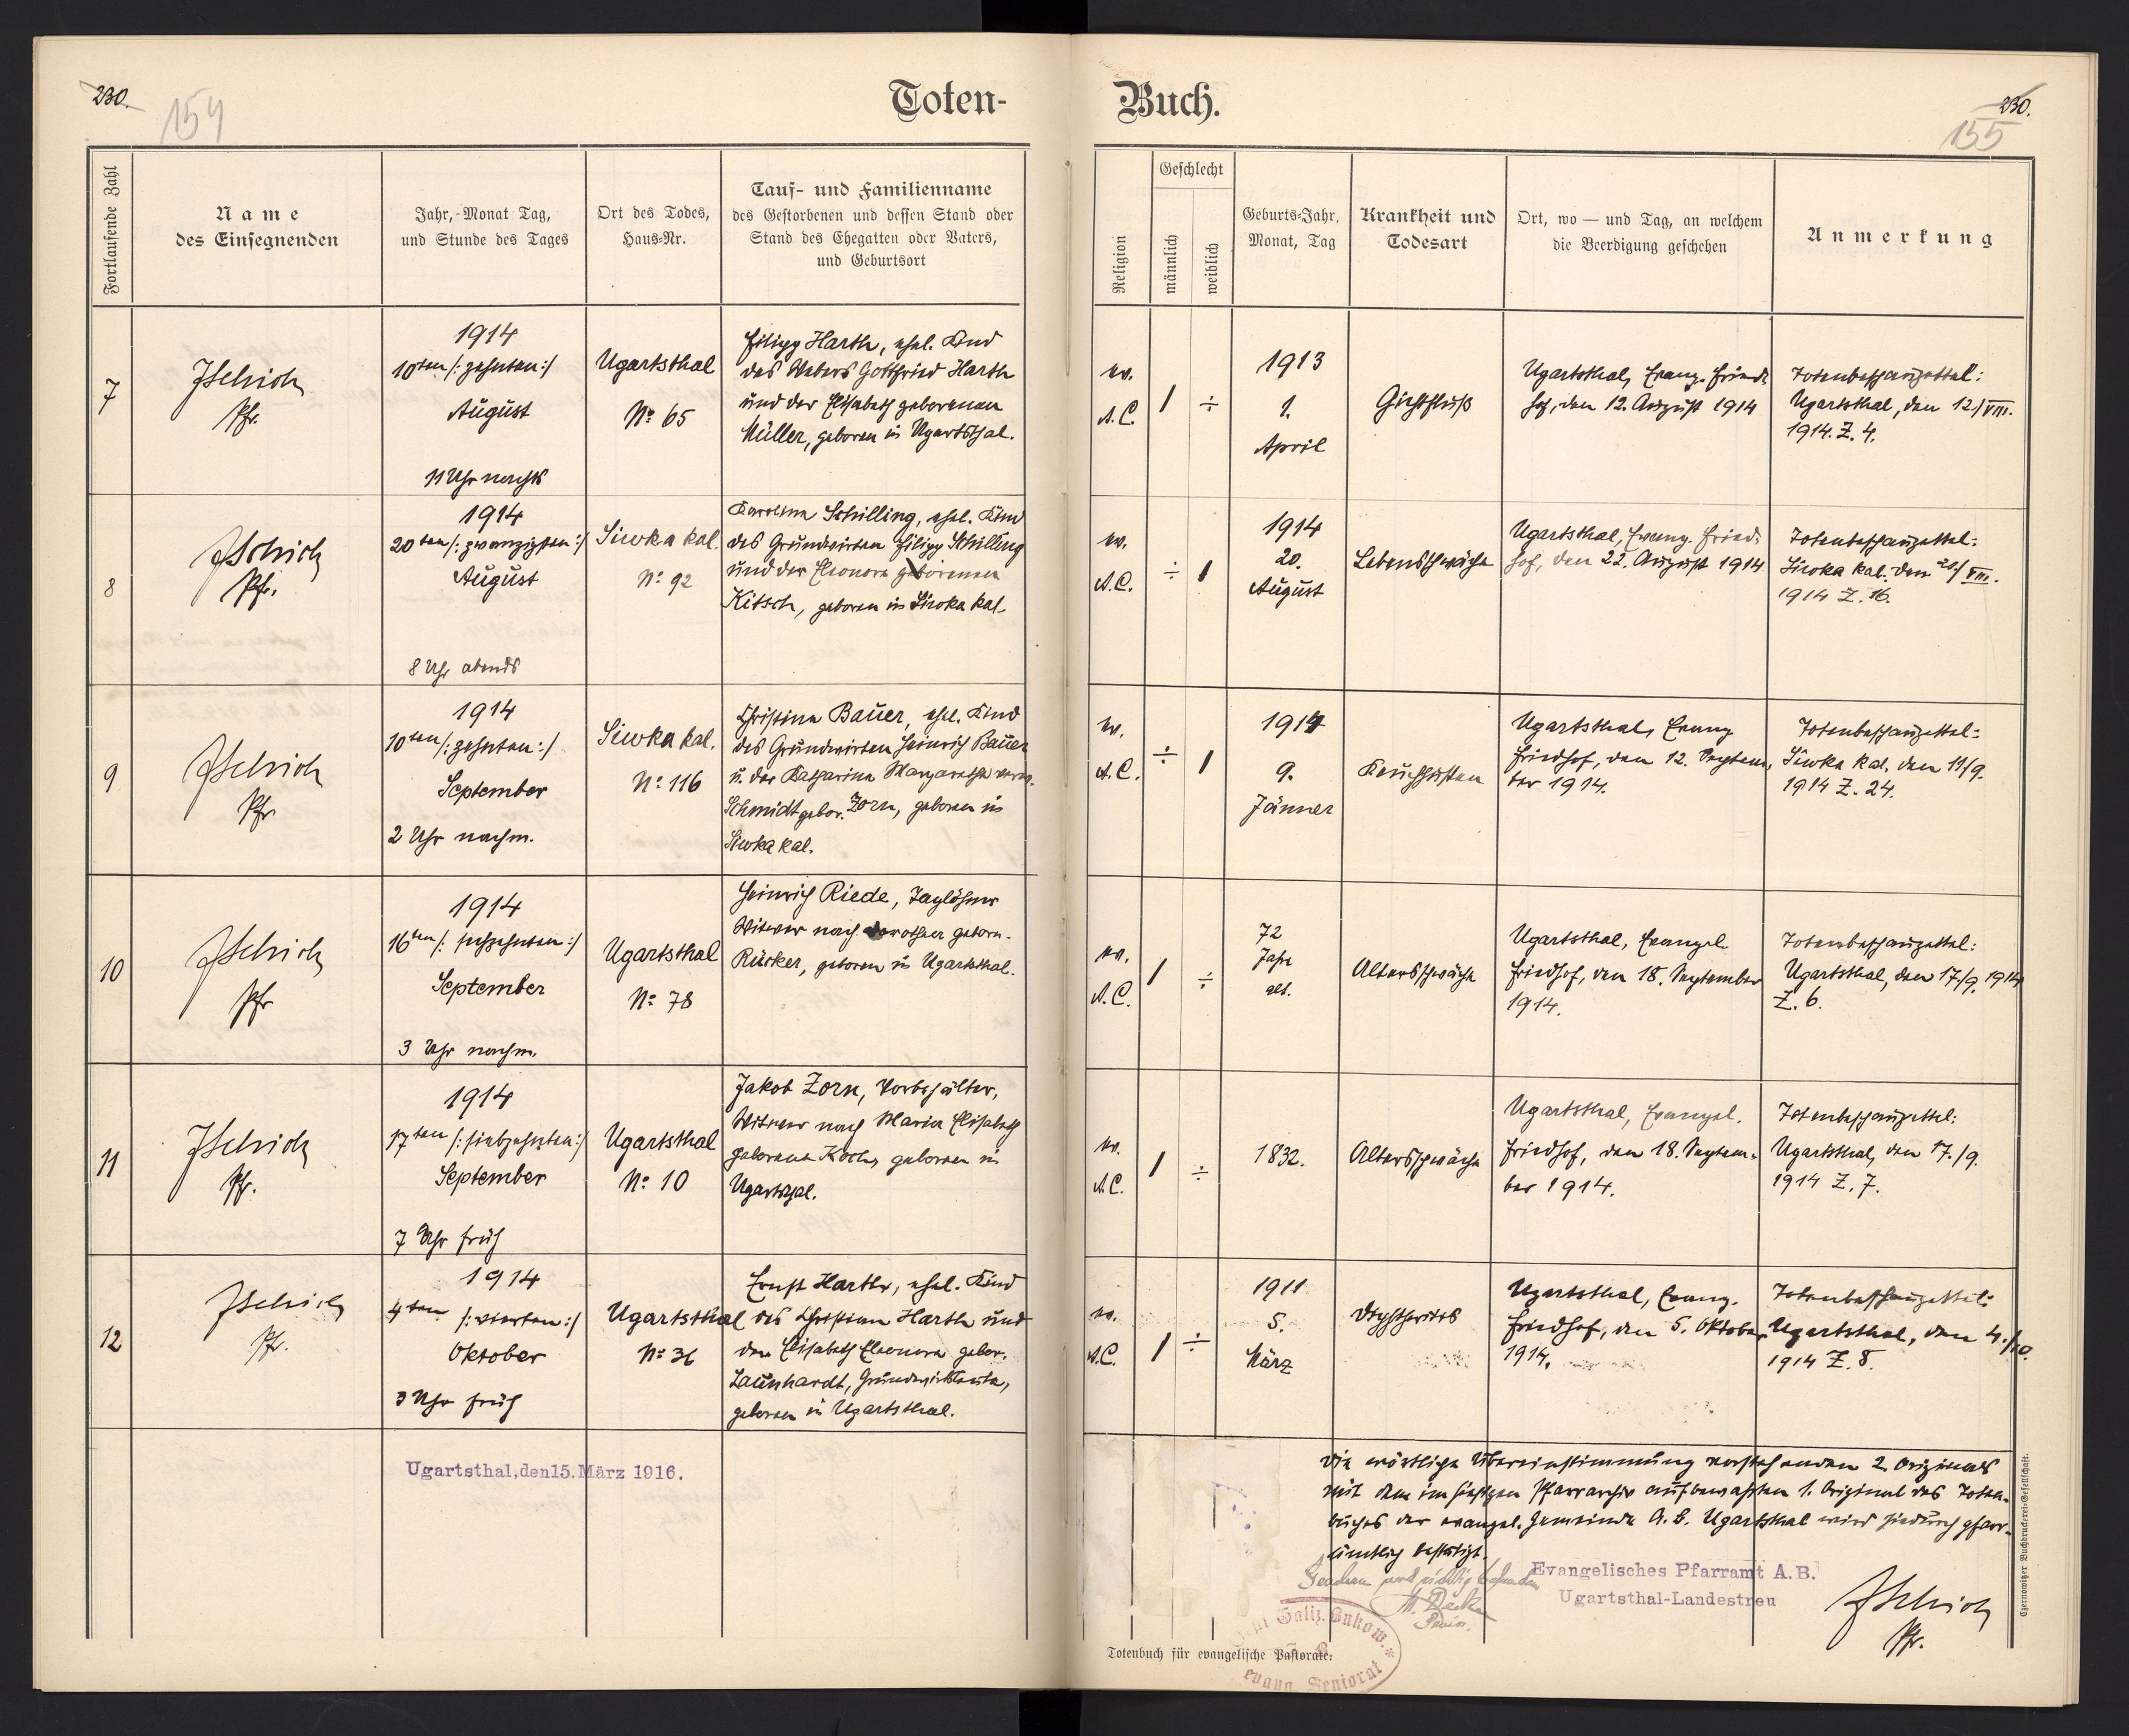 230.
154
Toten-
Buch.
230.
155
Fortlaufende Zahl
Name
des Einsegnenden
Jahr,-Monat Tag,
und Stunde des Tages
Ort des Todes,
Haus-Nr.
Tauf- und Familienname
des Gestorbenen und dessen Stand oder
Stand des Ehegatten oder Vaters,
und Geburtsort
Religion
Geschlecht
männlich
weiblich
Geburts-Jahr,
Monat, Tag
Krankheit und
Todesart
Ort, wo — und Tag, an welchem
die Beerdigung geschehen
Anmerkung
7
Pfr.
1914
10ten /: zehnten :/
August
11 Uhr nachts
Ugartsthal
No 65
Filipp Harth, ehel. Kind
des Webers Gottfried Harth
und der Elisabeth geborenen
Müller, geboren in Ugartsthal.
ev.
A.C.
1
÷
1913
1.
April
Gichtfluß
Ugartsthal, Evang. Fried-
hof, den 12. August 1914
Totenbeschauzettel:
Ugartsthal, den 12./VIII.
1914. Z. 4.
8
Pfr.
1914
20ten /: zwanzigsten :/
August
8 Uhr abends
Siwka kal.
No 92
Karolina Schilling, ehel. Kind
des Grundwirten Filipp Schilling
und der Eleonora geborenen
Kitsch, geboren in Siwka kal.
ev.
A.C.
÷
1
1914
20.
August
Lebensschwäche
Ugartsthal, Evang. Fried-
hof, den 22. August 1914
Totenbeschauzettel:
Siwka kal. den 21/VIII.
1914 Z. 16.
9
Pfr
1914
10ten /: zehnten :/
September
2 Uhr nachm.
Siwka kal.
No 116
Christina Bauer, ehel. Kind
des Grundwirten Heinrich Bauer
u. der Katharina Margaretha verw.
Schmidt gebor. Zorn, geboren in
Siwka kal.
ev.
A.C.
÷
1
1914
9.
Jänner
Keuchhusten
Ugartsthal, Evang.
Friedhof, den 12. Septem-
ber 1914.
Totenbeschauzettel:
Siwka kal. den 11/9.
1914 Z. 24.
10
Pfr
1914
16ten /: sechzehnten :/
September
3 Uhr nachm.
Ugartsthal
No 78
Heinrich Riede, Taglöhner
Witwer nach Dorothea gebor.
Rücker, geboren in Ugartsthal.
ev.
A.C.
1
÷
72
Jahre
alt.
Altersschwäche
Ugartsthal, Evangel.
Friedhof, den 18. September
1914.
Totenbeschauzettel:
Ugartsthal, den 17./9. 1914
Z. 6.
11
Pfr.
1914
17ten /: siebzehnten :/
September
7 Uhr früh
Ugartsthal
No 10
Jakob Zorn, Vorbehälter,
Witwer nach Maria Elisabeth
geborene Koch, geboren in
Ugartsthal.
ev.
A.C.
1
÷
1832.
Altersschwäche
Ugartsthal, Evangel.
Friedhof, den 18. Septem-
ber 1914.
Totenbeschauzettel:
Ugartsthal, den 17./9.
1914 Z. 7.
12
Pfr.
1914
4ten /: vierten :/
Oktober
3 Uhr früh
Ugartsthal
No 36
Ernst Harth, ehel. Kind
des Christian Harth und
der Elisabeth Eleonora gebor.
Launhardt, Grundwirtsleute,
geboren in Ugartsthal.
ev.
A.C.
1
÷
1911
5.
März
Diphtheritis
Ugartsthal, Evang.
Friedhof, den 5. Oktober
1914.
Totenbeschauzettel:
Ugartsthal, den 4./10.
1914 Z. 8.
Ugartsthal, den 15. März 1916.
Die wörtliche Übereinstimmung vorstehenden 2. Originals
mit dem im hiesigen Pfarrarchiv aufbewahrten 1. Original des Toten-
buches der evangel. Gemeinde A. B. Ugartsthal wird hiedurch pfarr-
ämtlich bestätigt.
Gesehen und richtig befunden
Senior.
Evangelisches Pfarramt A.B.
Ugartsthal-Landestreu
Pfr.
Galiz. Bukow.
evang. Seniorat
Totenbuch für evangelische Pastorate.
Czernowitzer Buchdruckerei-Gesellschaft.